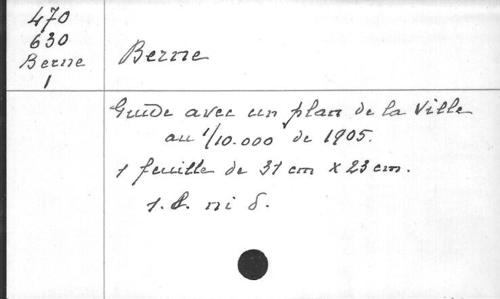 470
630
Berne
1
Berne
Guide avec un plan de la Ville
au 1/10.000 de 1905.
1 feuille de 31 cm x 23 cm.
s.l. ni d.